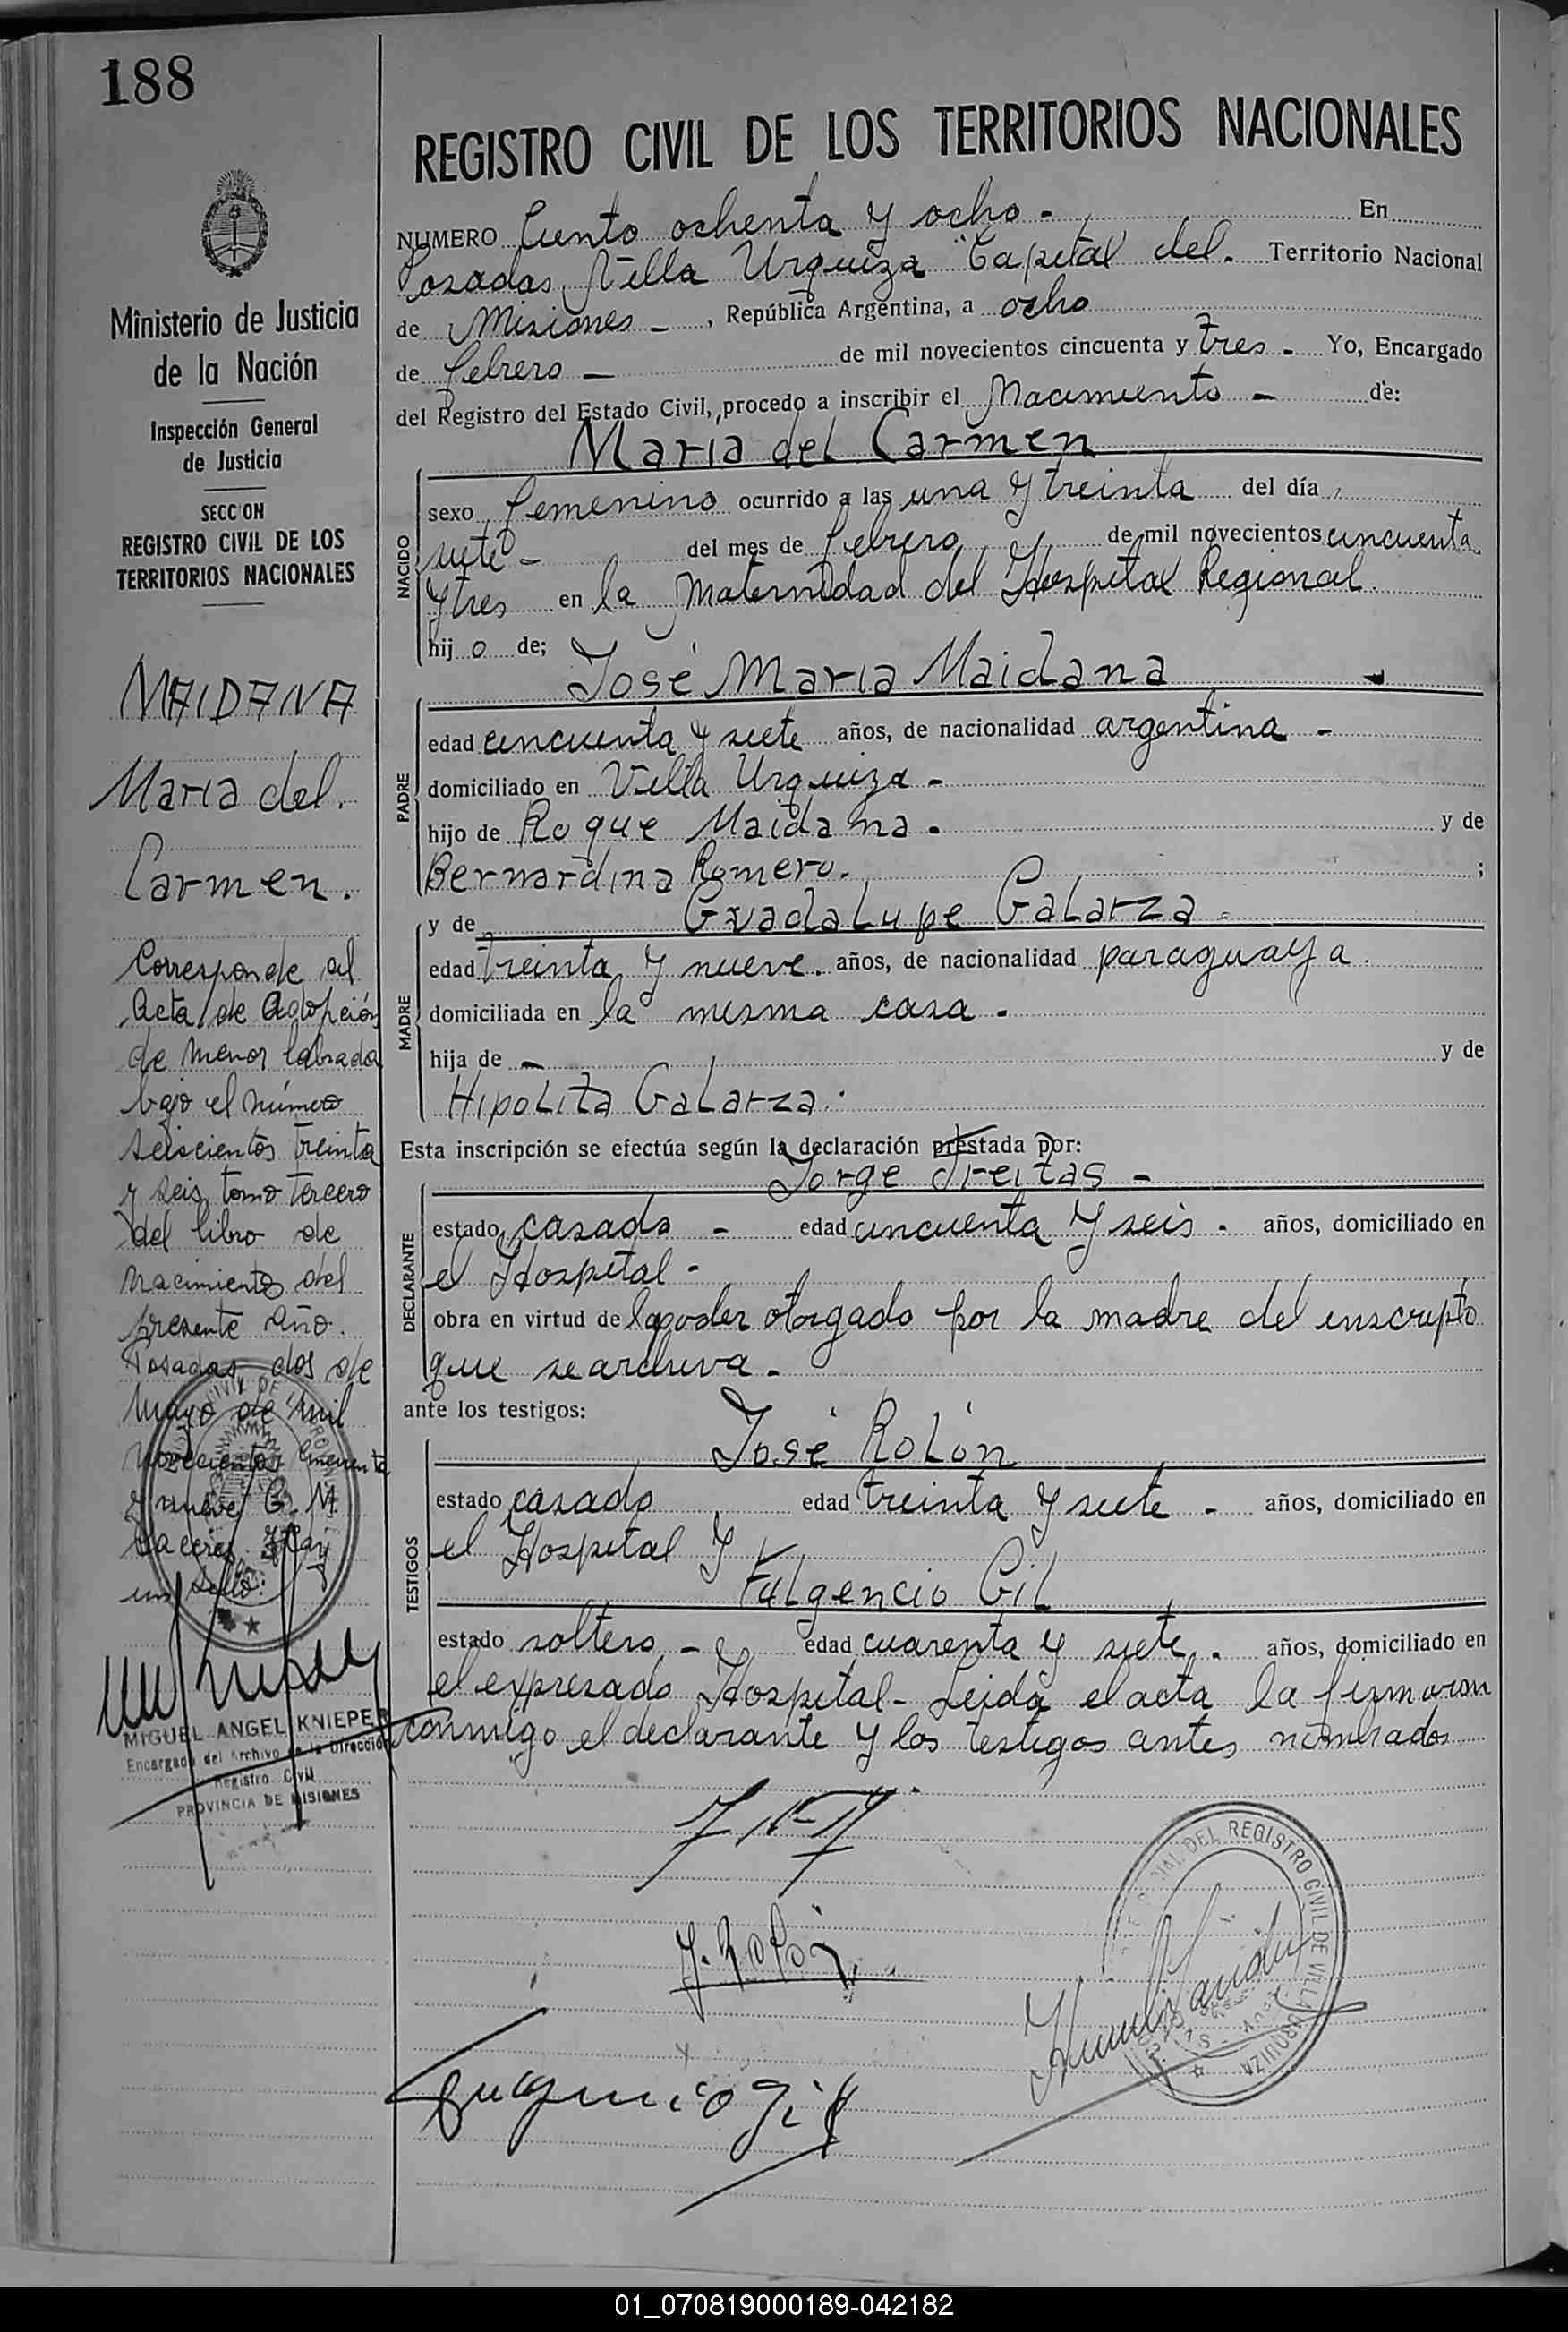 188
Ministerio de Justicia
de la Nación
Inspección General
de Justicia
SECCION
REGISTRO CIVIL DE LOS
TERRITORIOS NACIONALES
MAIDANA
Maria del.
Carmen.
Corresponde al
Acta de Adopción
de menor labrada
bajo el número
seiscientos treinta
y seis, tomo tercero
del libro de
nacimientos del
presente año.
Posadas dos de
Mayo de mil
novecientos cincuenta
y nueve G. M.
Caceres. Hay
un sello:
MIGUEL ANGEL KNIEPER
Encargado del Archivo de la Dirección
Registro Civil
PROVINCIA DE MISIONES
REGISTRO CIVIL DE LOS TERRITORIOS NACIONALES
NUMERO Ciento ochenta y ocho - En
Posadas, Villa Urquiza Capital del. Territorio Nacional
de Misiones - , República Argentina, a ocho
de febrero - de mil novecientos cincuenta y tres - Yo, Encargado
del Registro del Estado Civil, procedo a inscribir el Nacimiento - de:
Maria del Carmen
NACIDO
sexo femenino ocurrido a las una y treinta del día
siete - del mes de febrero de mil novecientos cincuenta
y tres en la Maternidad del Hospital Regional.
hij o de;
José Maria Maidana
PADRE
edad cincuenta y siete años, de nacionalidad argentina -
domiciliado en Villa Urquiza -
hijo de Roque Maidana. y de
Bernardina Romero. ;
y de Guadalupe Galarza
MADRE
edad treinta y nueve. años, de nacionalidad paraguaya.
domiciliada en la misma casa.
hija de - y de
Hipolita Galarza.
Esta inscripción se efectúa según la declaración prestada por:
Jorge Freitas -
DECLARANTE
estado casado - edad cincuenta y seis. años, domiciliado en
el Hospital -
obra en virtud de poder otorgado por la madre del inscripto
que se archiva -
ante los testigos:
José Rolón
TESTIGOS
estado casado edad treinta y siete - años, domiciliado en
el Hospital y
Fulgencio Gil
estado soltero - edad cuarenta y siete. años, domiciliado en
el expresado Hospital - Leida el acta la firmaron
conmigo el declarante y los testigos antes nombrados
J. Rolón
DEL REGISTRO CIVIL DE VILLA URQUIZA
01_070819000189-042182